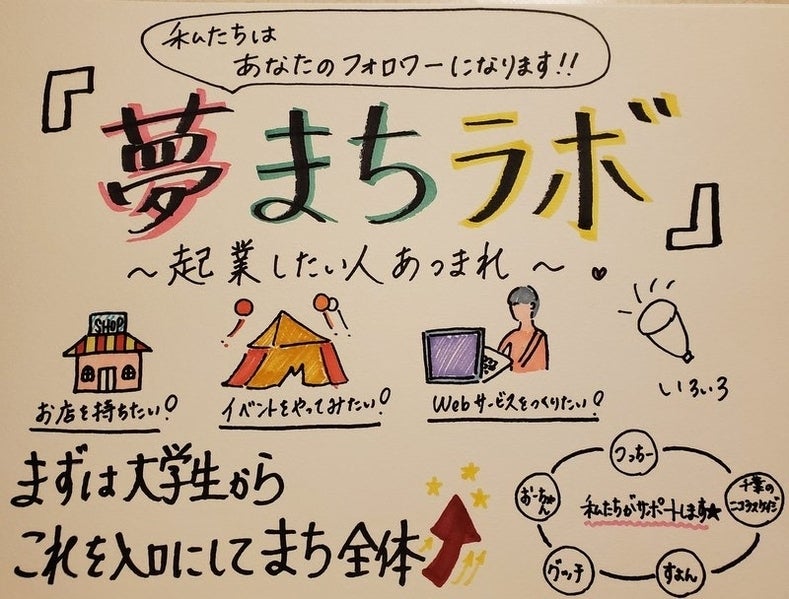 私たちは
あなたのフォロワーになります!!
『夢まちラボ』
〜起業したい人あつまれ〜
SHOP
お店を持ちたい!
イベントをやってみたい!
Webサービスをつくりたい!
いろいろ
まずは大学生から
これを入口にしてまち全体
つっちー
おーちゃん
千葉の
ニコラスケイジ
私たちがサポートします★
グッチ
すよん